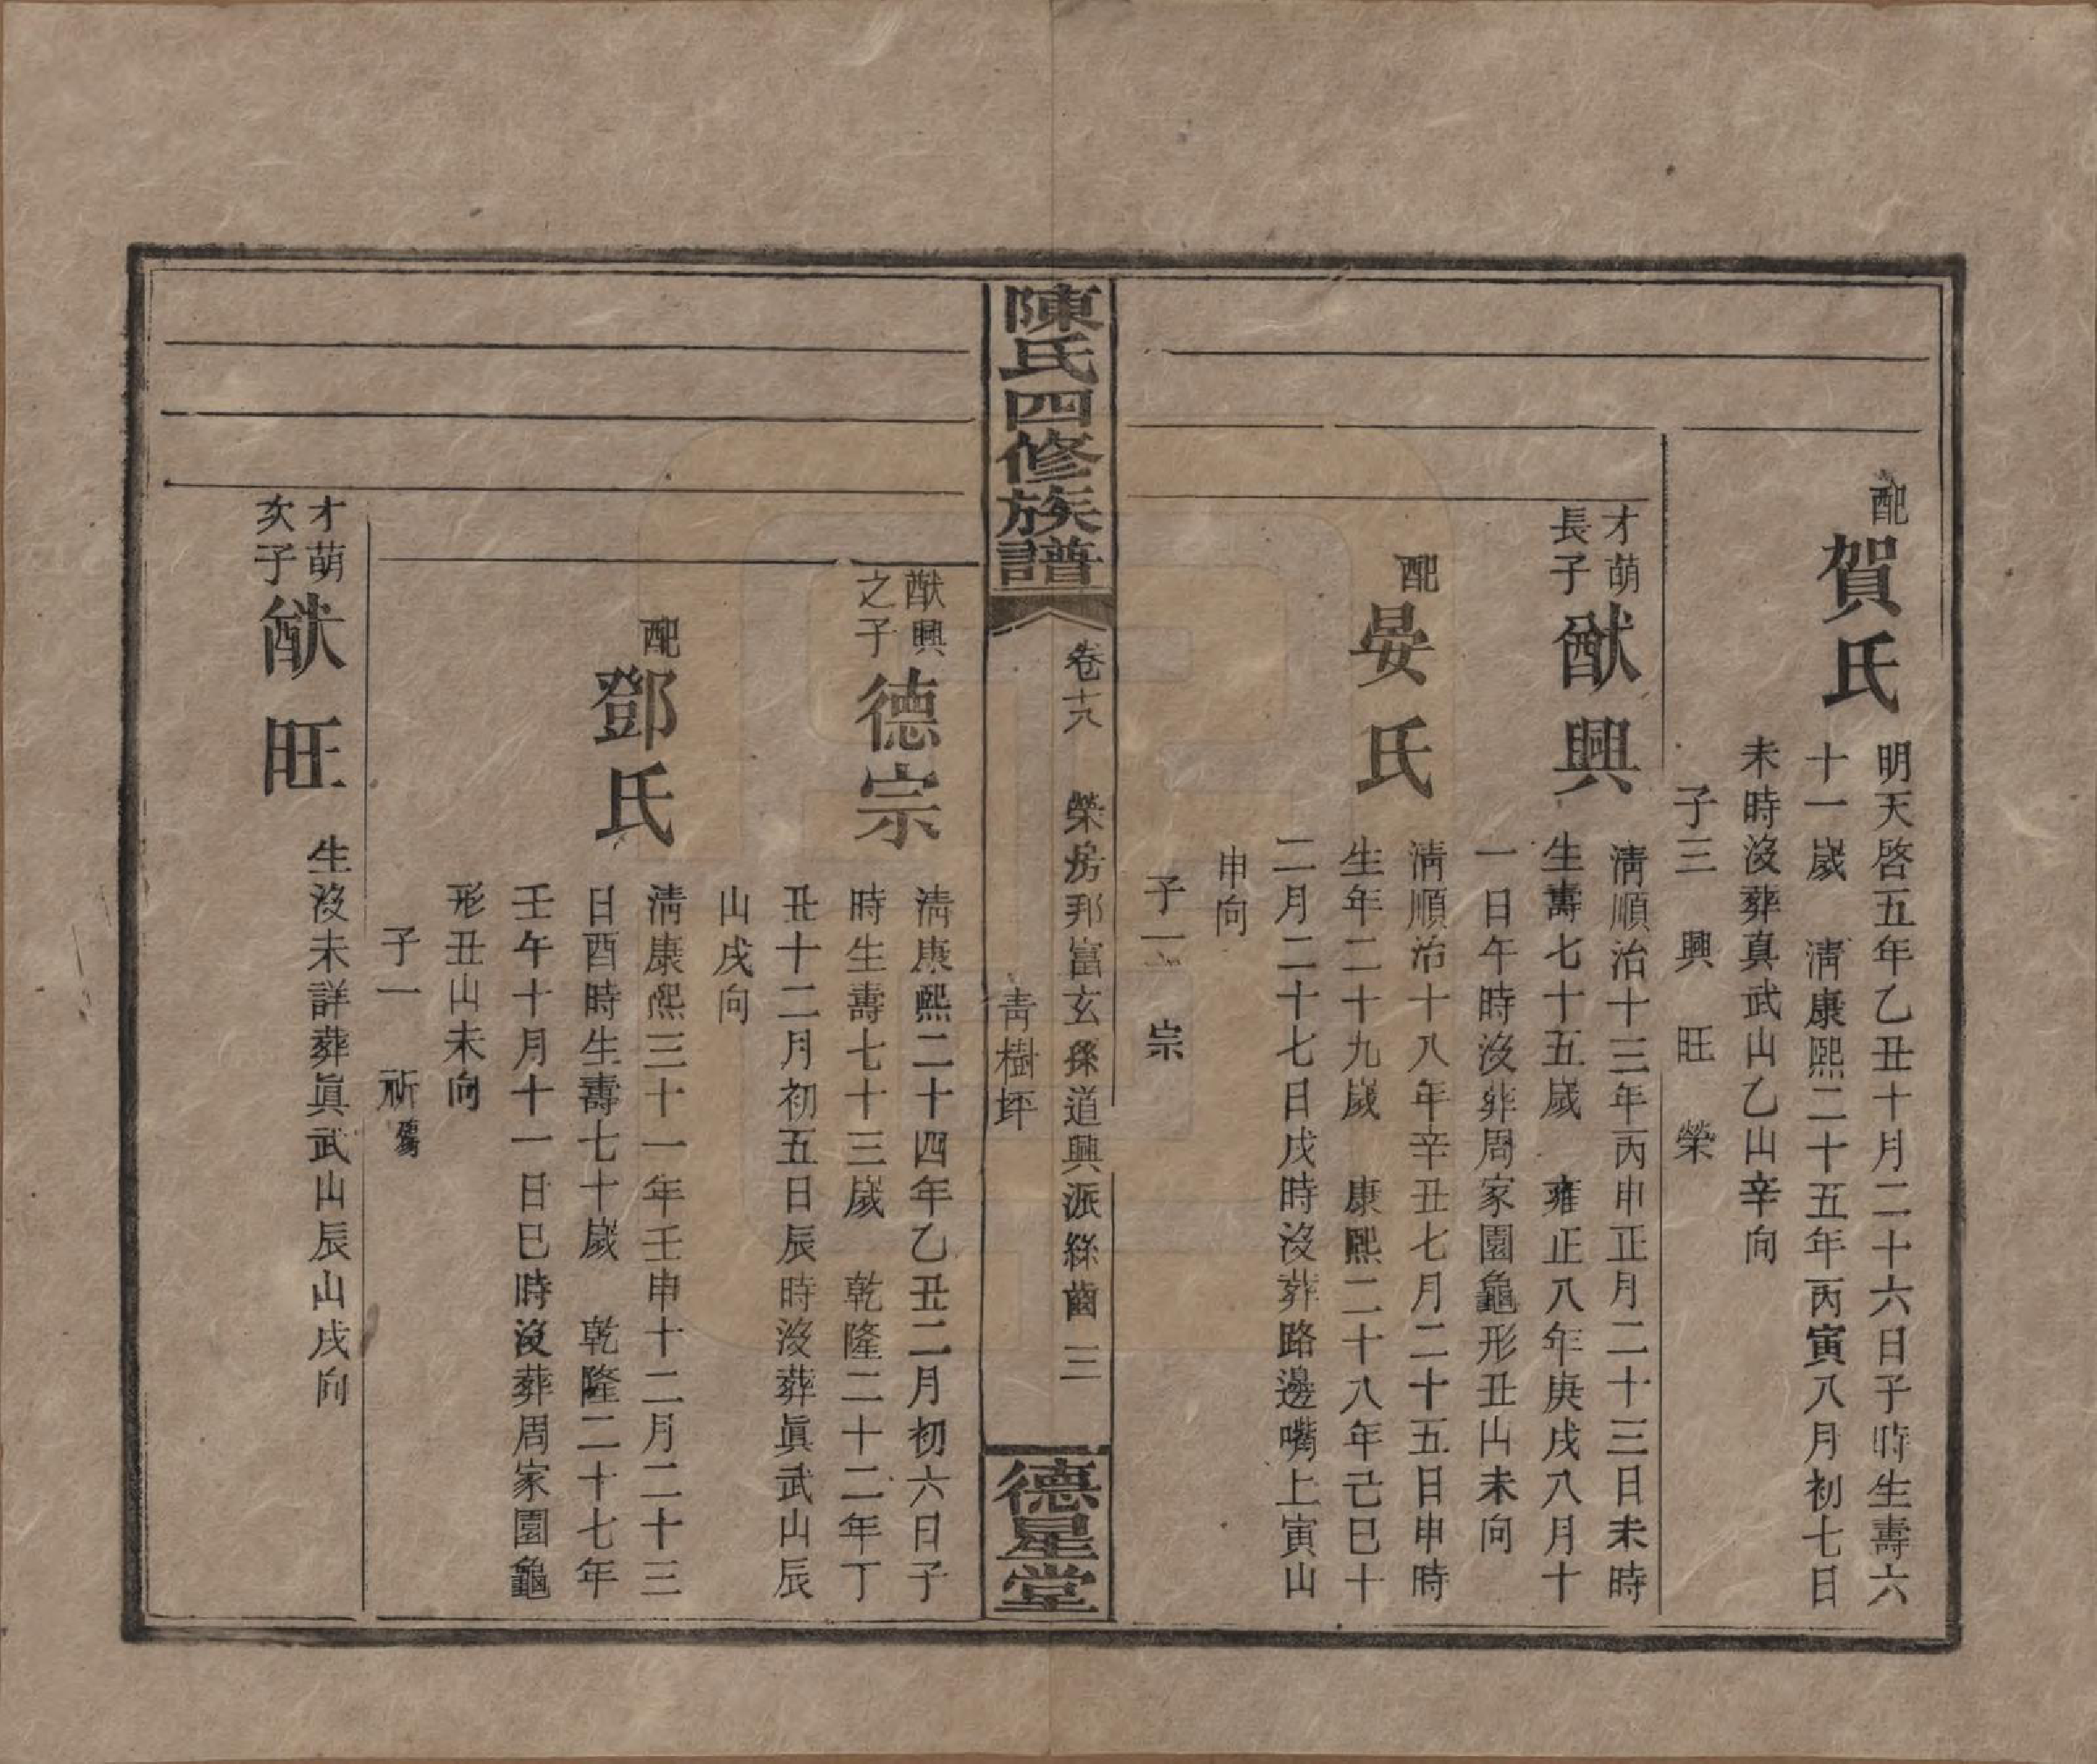 配
賀氏
明天啓五年乙丑十月二十六日子時生壽六
十一歲　清康熙二十五年丙寅八月初七日
未時沒葬真武山乙山辛向
子三　興　旺　榮
才萌
長子
猷興
清順治十三年丙申正月二十三日未時
生壽七十五歲　雍正八年庚戌八月十
一日午時沒葬周家園龜形丑山未向
配
晏氏
清順治十八年辛丑七月二十五日申時
生年二十九歲　康熙二十八年己巳十
二月二十七日戌時沒葬路邊嘴上寅山
申向
子一　宗
陳氏四修族譜
卷十八　榮房邦富玄孫道興派綠齒　三
青樹坪
德星堂
猷興
之子
德宗
清康熙二十四年乙丑二月初六日子
時生壽七十三歲　乾隆二十二年丁
丑十二月初五日辰時沒葬眞武山辰
山戌向
配
鄧氏
清康熙三十一年壬申十二月二十三
日酉時生壽七十歲　乾隆二十七年
壬午十月十一日巳時沒葬周家園龜
形丑山未向
子一　祈
才萌
次子
猷旺
生沒未詳葬眞武山辰山戌向